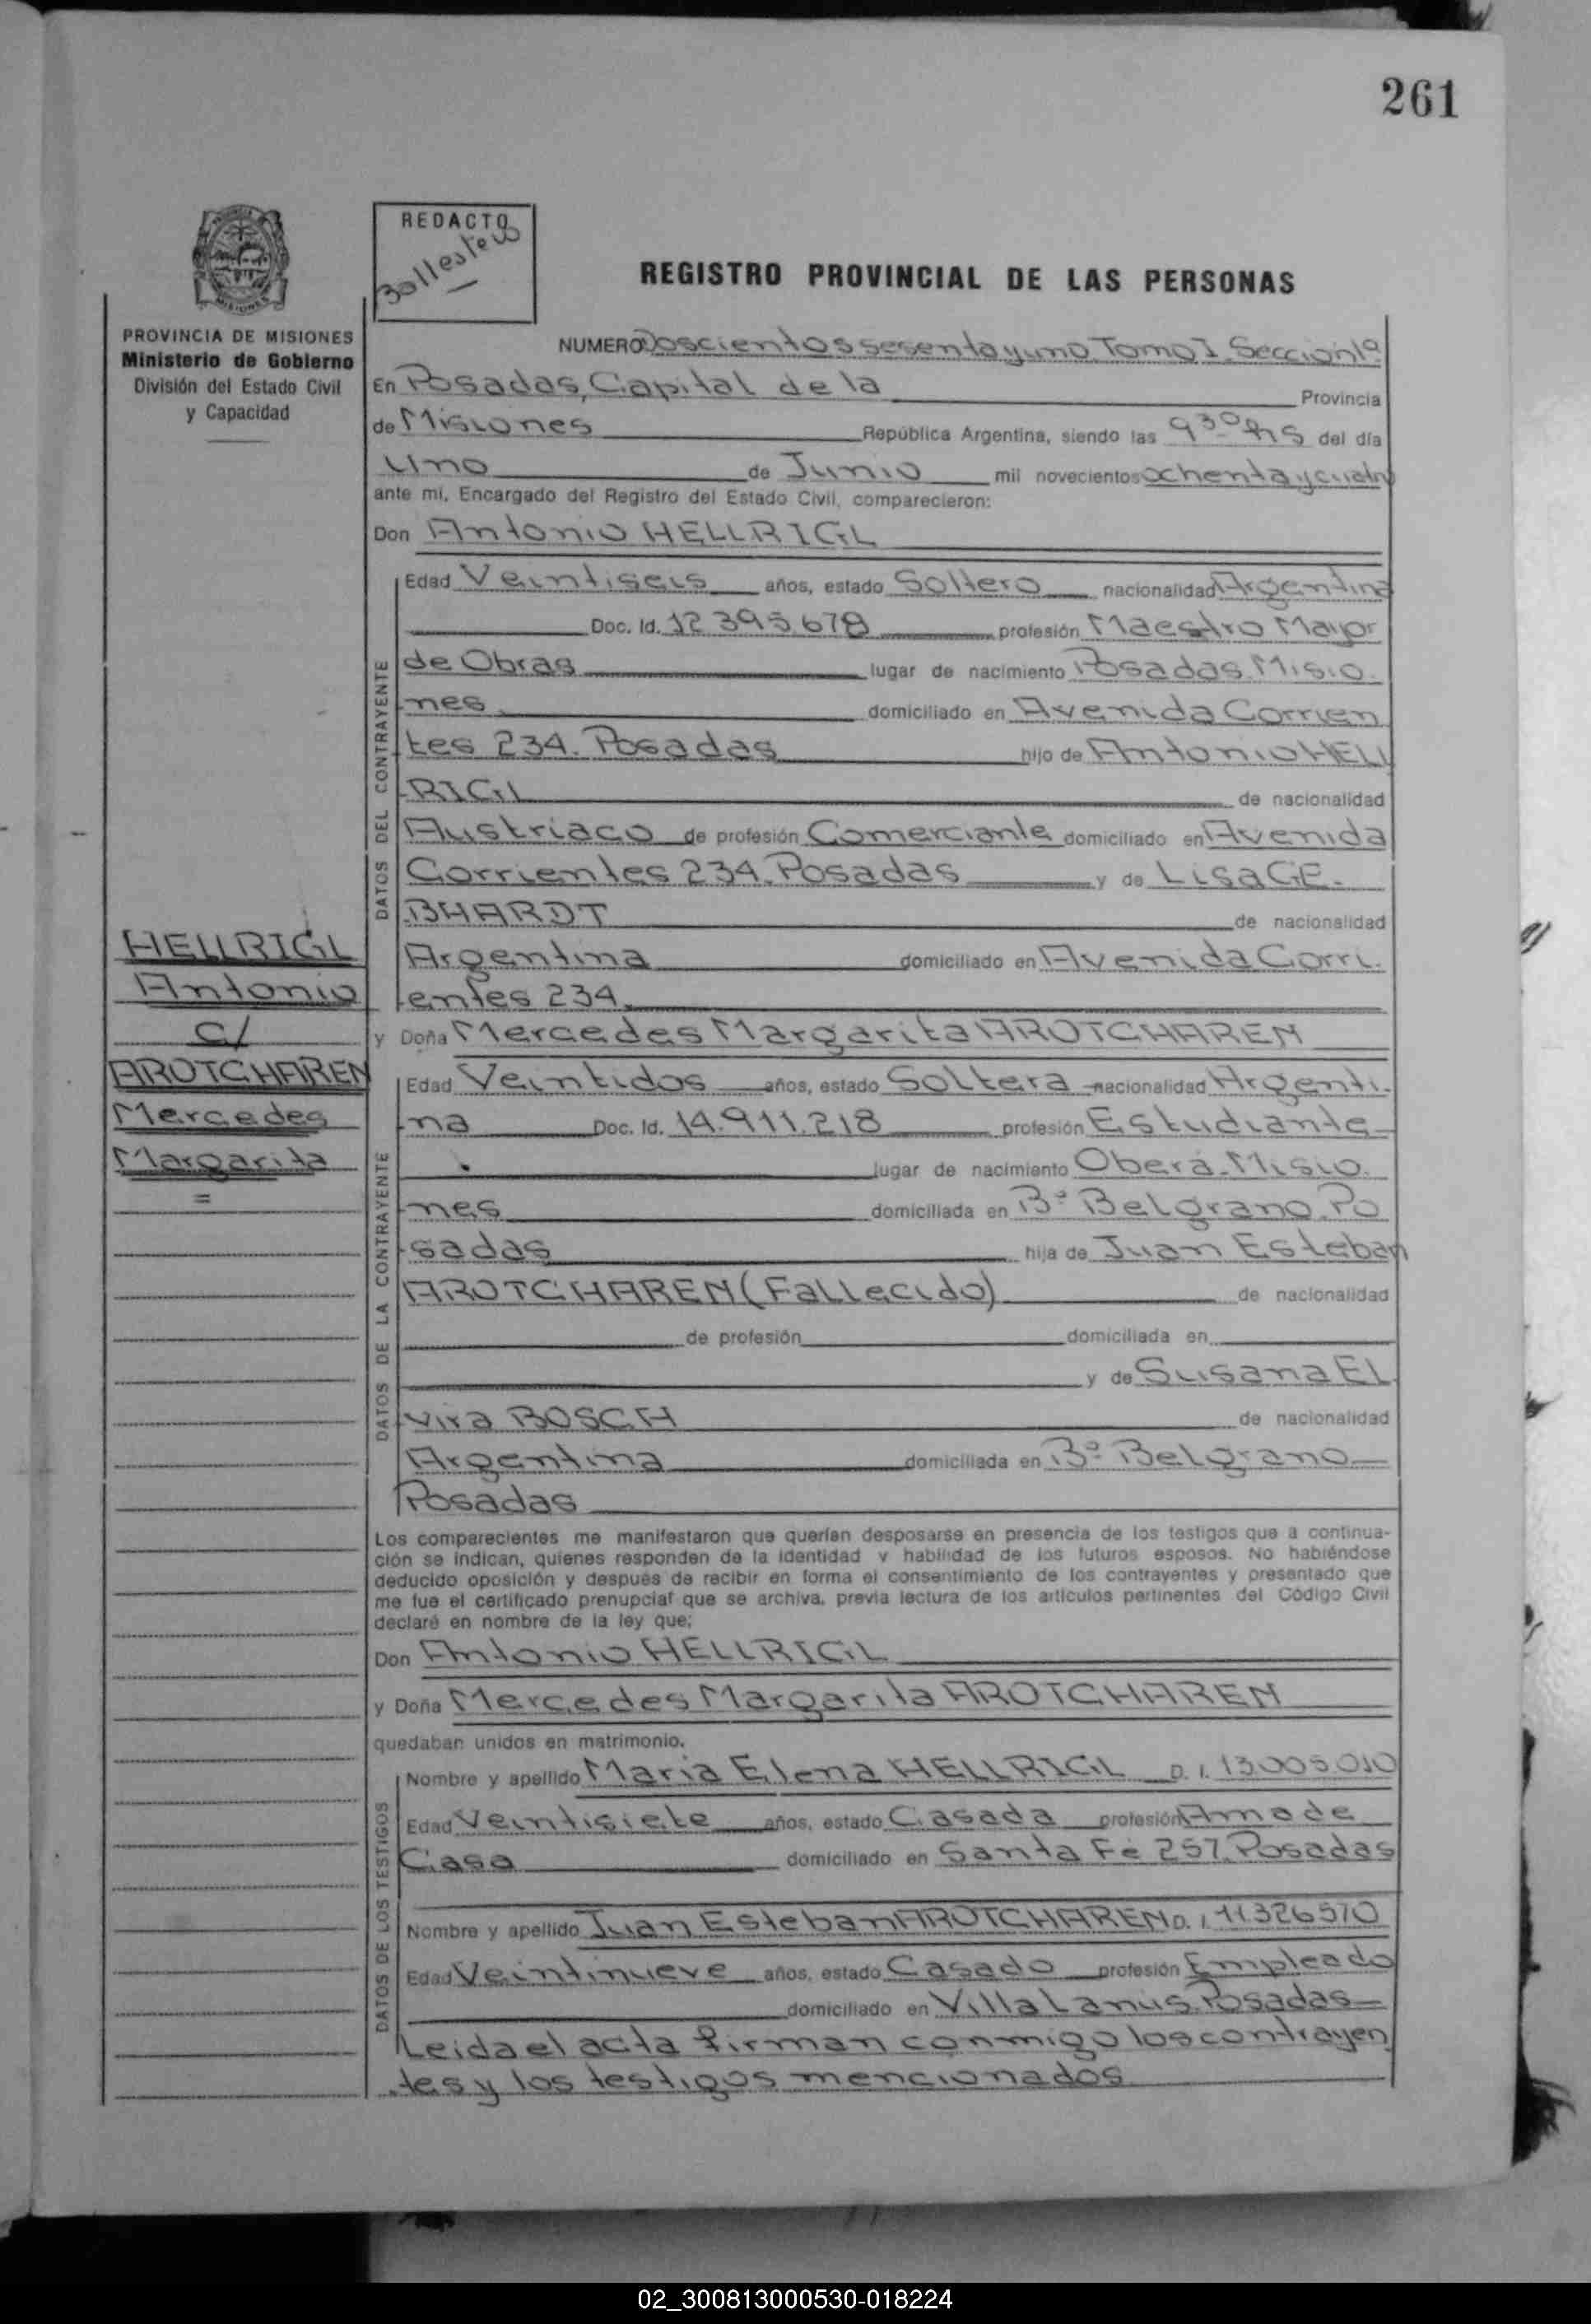 261
REDACTO
Ballesteros
REGISTRO PROVINCIAL DE LAS PERSONAS
PROVINCIA DE MISIONES
Ministerio de Gobierno
División del Estado Civil
y Capacidad
NUMERO Doscientos sesenta y uno Tomo I Sección 1ª
En Posadas, Capital de la Provincia
de Misiones República Argentina, siendo las 9 30 hs del día
uno de Junio mil novecientos ochenta y cuatro
ante mí, Encargado del Registro del Estado Civil, comparecieron:
Don Antonio HELLRIGL
DATOS DEL CONTRAYENTE
Edad Veintiseis años, estado Soltero nacionalidad Argentina
Doc. Id. 12.395.678 profesión Maestro Mayor
de Obras lugar de nacimiento Posadas Misio
nes domiciliado en Avenida Corrien
tes 234. Posadas hijo de Antonio HELL
RIGL de nacionalidad
Austriaco de profesión Comerciante domiciliado en Avenida
Corrientes 234. Posadas y de Lisa GE.
BHARDT de nacionalidad
Argentina domiciliado en Avenida Corri.
entes 234.
HELLRIGL
Antonio
c/
AROTCHAREN
Mercedes
Margarita
=
y Doña Mercedes Margarita AROTCHAREN
DATOS DE LA CONTRAYENTE
Edad Veintidos años, estado Soltera nacionalidad Argenti.
na Doc. Id. 14.911.218 profesión Estudiante
lugar de nacimiento Oberá. Misio.
nes domiciliada en Bº Belgrano. Po
sadas hija de Juan Esteban
AROTCHAREN (Fallecido) de nacionalidad
de profesión domiciliada en
y de Susana El
vira BOSCH de nacionalidad
Argentina domiciliada en Bº Belgrano
Posadas
Los comparecientes me manifestaron que querían desposarse en presencia de los testigos que a continua-
ción se indican, quienes responden de la identidad y habilidad de los futuros esposos. No habiéndose
deducido oposición y después de recibir en forma el consentimiento de los contrayentes y presentado que
me fue el certificado prenupcial que se archiva, previa lectura de los artículos pertinentes del Código Civil
declaré en nombre de la ley que;
Don Antonio HELLRIGL
y Doña Mercedes Margarita AROTCHAREN
quedaban unidos en matrimonio.
DATOS DE LOS TESTIGOS
Nombre y apellido Maria Elena HELLRIGL D. I. 13.005.010
Edad Veintisiete años, estado Casada profesión Ama de
Casa domiciliado en Santa Fe 257. Posadas
Nombre y apellido Juan Esteban AROTCHAREN D. I. 11326570
Edad Veintinueve años, estado Casado profesión Empleado
domiciliado en Villa Lanus. Posadas
Leida el acta firman conmigo los contrayen
tes y los testigos mencionados
02_300813000530-018224